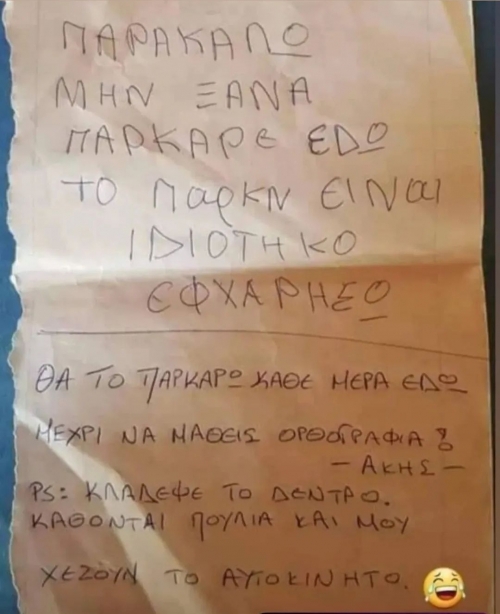 ΠΑΡΑΚΑΛΩ
ΜΗΝ ΞΑΝΑ
ΠΑΡΚΑΡΕ ΕΔΩ
ΤΟ ΠαρκΝ ΕΙΝαι
ΙΔΙΟΤΗΚΟ
ΕΦΧΑΡΗΣΩ
ΘΑ ΤΟ ΠΑΡΚΑΡΩ ΚΑΘΕ ΜΕΡΑ ΕΔΩ
ΜΕΧΡΙ ΝΑ ΜΑΘΕΙΣ ΟΡΘΟΓΡΑΦΙΑ!
- ΑΚΗΣ -
PS: ΚΛΑΔΕΨΕ ΤΟ ΔΕΝΤΡΟ.
ΚΑΘΟΝΤΑΙ ΠΟΥΛΙΑ ΚΑΙ ΜΟΥ
ΧΕΖΟΥΝ ΤΟ ΑΥΤΟΚΙΝΗΤΟ.